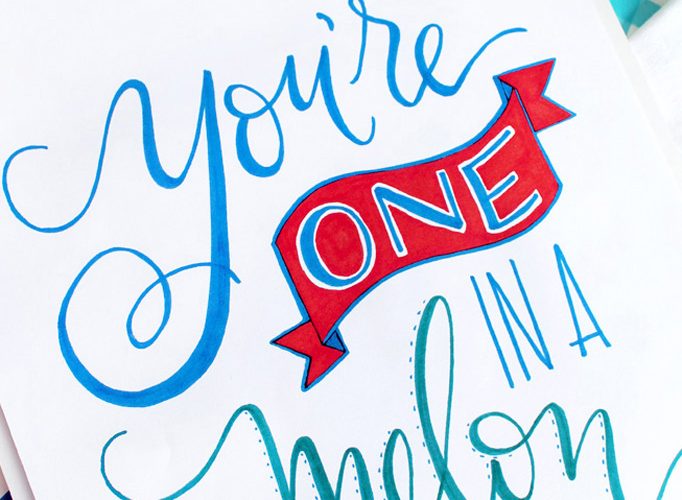 you're
ONE
IN A
melon